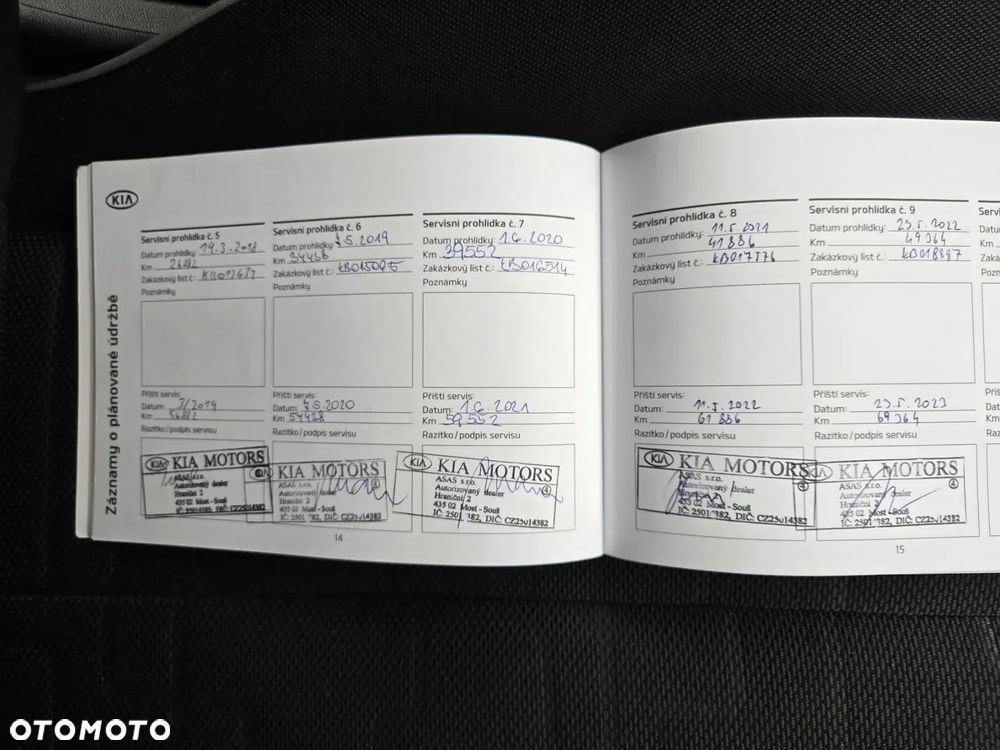 KIA
Záznamy o plánované údržbě
Servisní prohlídka č. 5
Datum prohlídky: 19.3.2018
Km 26882
Zakázkový list č.:
Poznámky
Příští servis:
Datum: 3/2019
Km 56882
Razítko/podpis servisu
KIA MOTORS
ASAS s.r.o.
Autorizovaný dealer
Hraniční 2
435 02 Most - Souš
IČ: 25014382, DIČ: CZ25014382
Servisní prohlídka č. 6
Datum prohlídky: 7.5.2019
Km 34488
Zakázkový list č.:
Poznámky
Příští servis:
Datum: 7.5.2020
Km 54488
Razítko/podpis servisu
KIA MOTORS
ASAS s.r.o.
Autorizovaný dealer
Hraniční 2
435 02 Most - Souš
IČ: 2501 382, DIČ: CZ25014382
Servisní prohlídka č. 7
Datum prohlídky: 1.6.2020
Km 39552
Zakázkový list č.: KB016514
Poznámky
Příští servis:
Datum: 1.6.2021
Km 59552
Razítko/podpis servisu
KIA MOTORS
ASAS s.r.o.
Autorizovaný dealer
Hraniční 2
435 02 Most - Souš
IČ: 2501 382, DIČ: CZ25014382
14
Servisní prohlídka č. 8
Datum prohlídky: 11.5.2021
Km 41886
Zakázkový list č.: KB017776
Poznámky
Příští servis:
Datum: 11.5.2022
Km 61886
Razítko/podpis servisu
KIA MOTORS
ASAS s.r.o.
Autorizovaný dealer
Hraniční 2
435 02 Most - Souš
IČ: 2501 382, DIČ: CZ25014382
Servisní prohlídka č. 9
Datum prohlídky: 23.5.2022
Km 49364
Zakázkový list č.: KB018887
Poznámky
Příští servis:
Datum: 23.5.2023
Km 69364
Razítko/podpis servisu
KIA MOTORS
ASAS s.r.o.
Autorizovaný dealer
Hraniční 2
435 02 Most - Souš
IČ: 2501 382, DIČ: CZ25014382
15
OTOMOTO